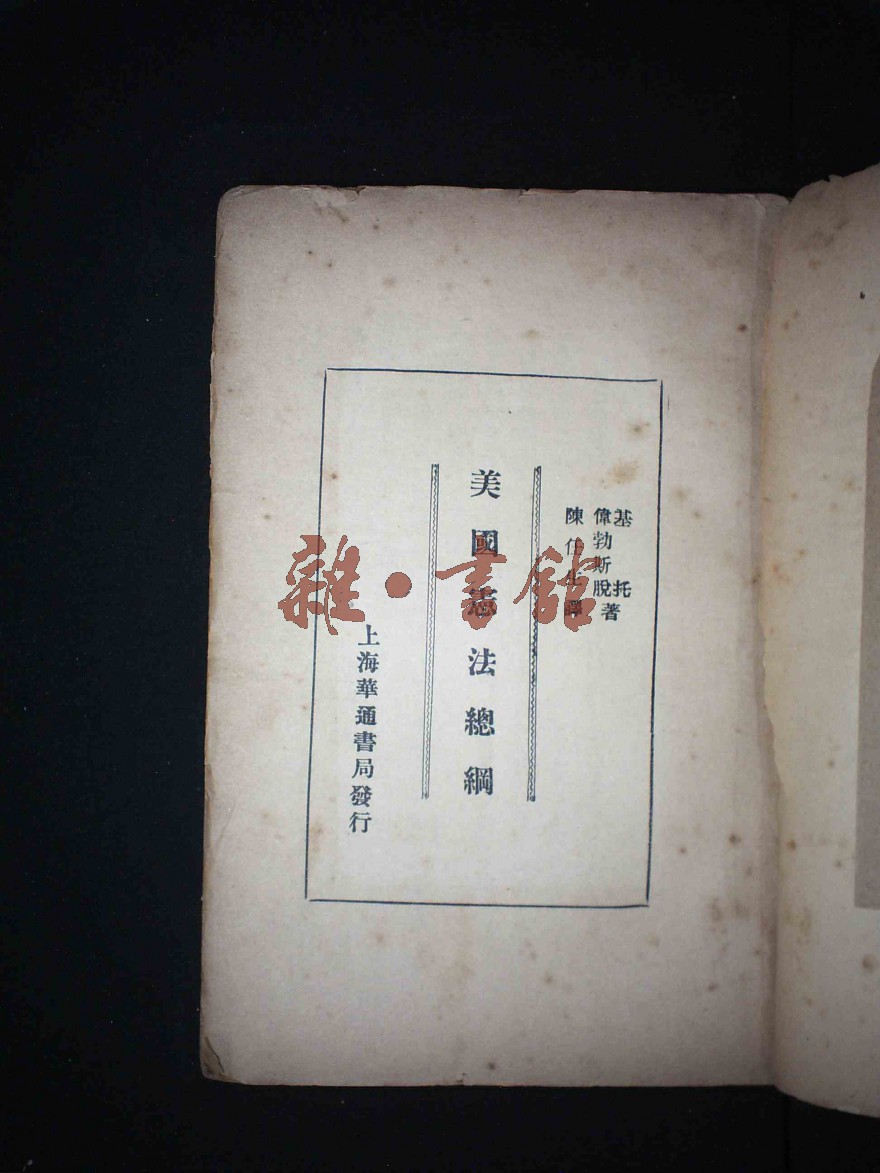 基托
偉勃斯脫著
陳任生譯
美國憲法總綱
上海華通書局發行
雜·書館